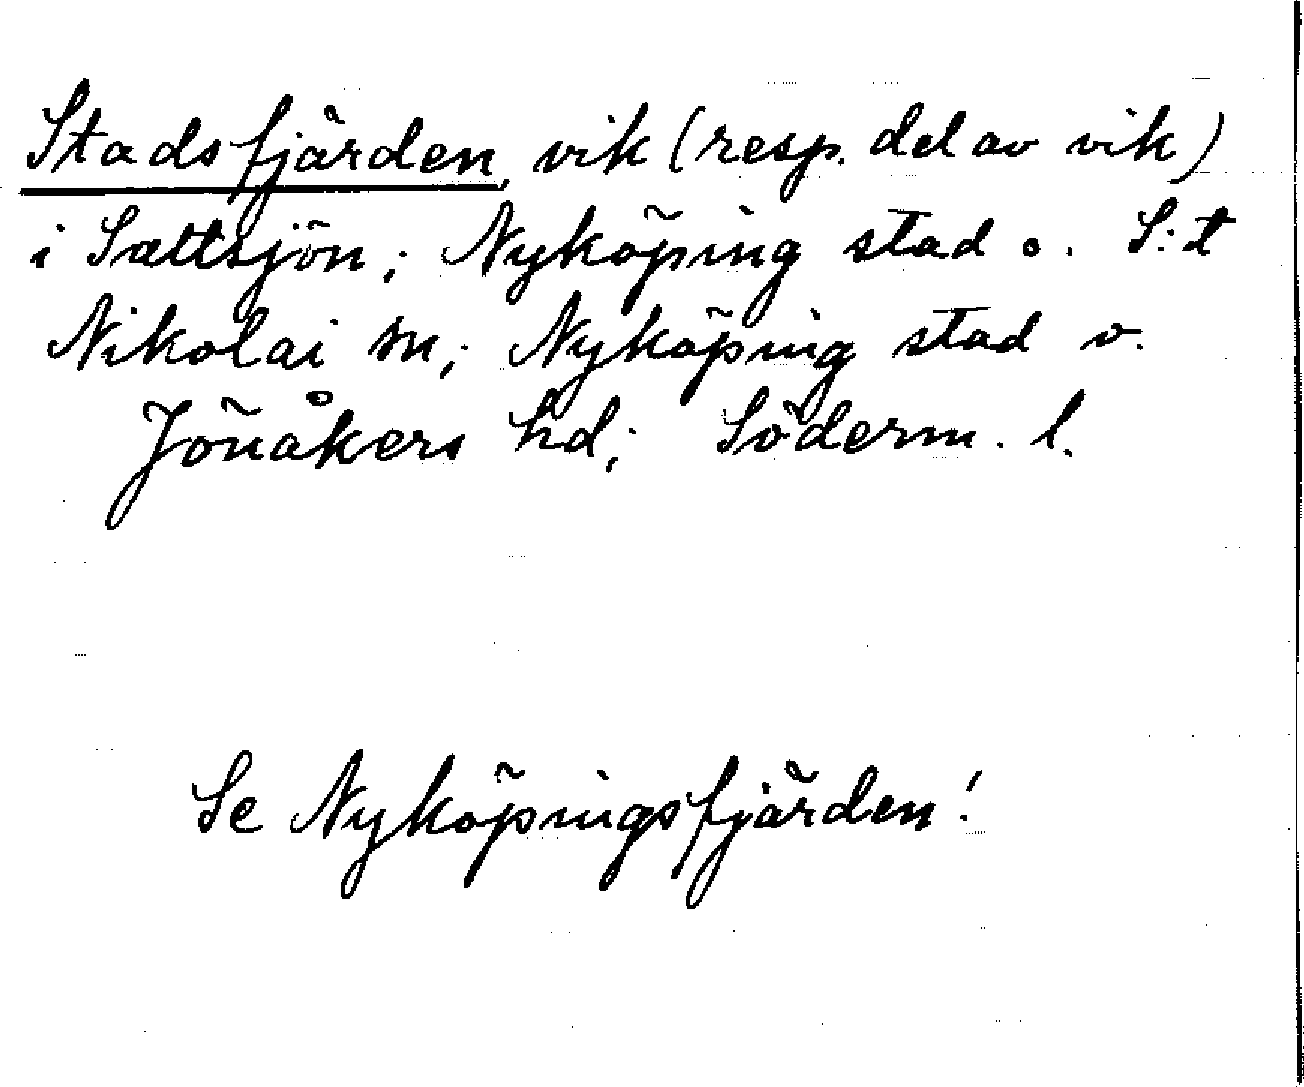 Stadsfjärden, vik (resp. del av vik)
i Saltsjön; Nyköping stad o. S:t
Nikolai sn; Nyköping stad o.
Jönåkers hd; Söderm. l.
Se Nyköpingsfjärden!